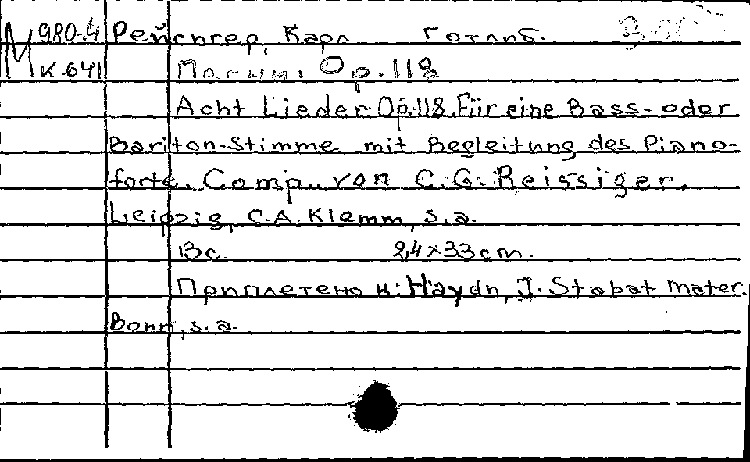 М 980-4 Рейсигер, Карл Готлиб.
К-641 Песни. Op.118
Acht Lieder. Op.118. Für eine Bass- oder
Bariton-Stimme mit Begleitung des Piano-
forte. Comp. von C.G. Reissiger.
Leipzig, C.A. Klemm, s.a.
13 с. 24×33 cm.
Приплетено к: Haydn, J. Stabat mater.
Bonn, s.a.